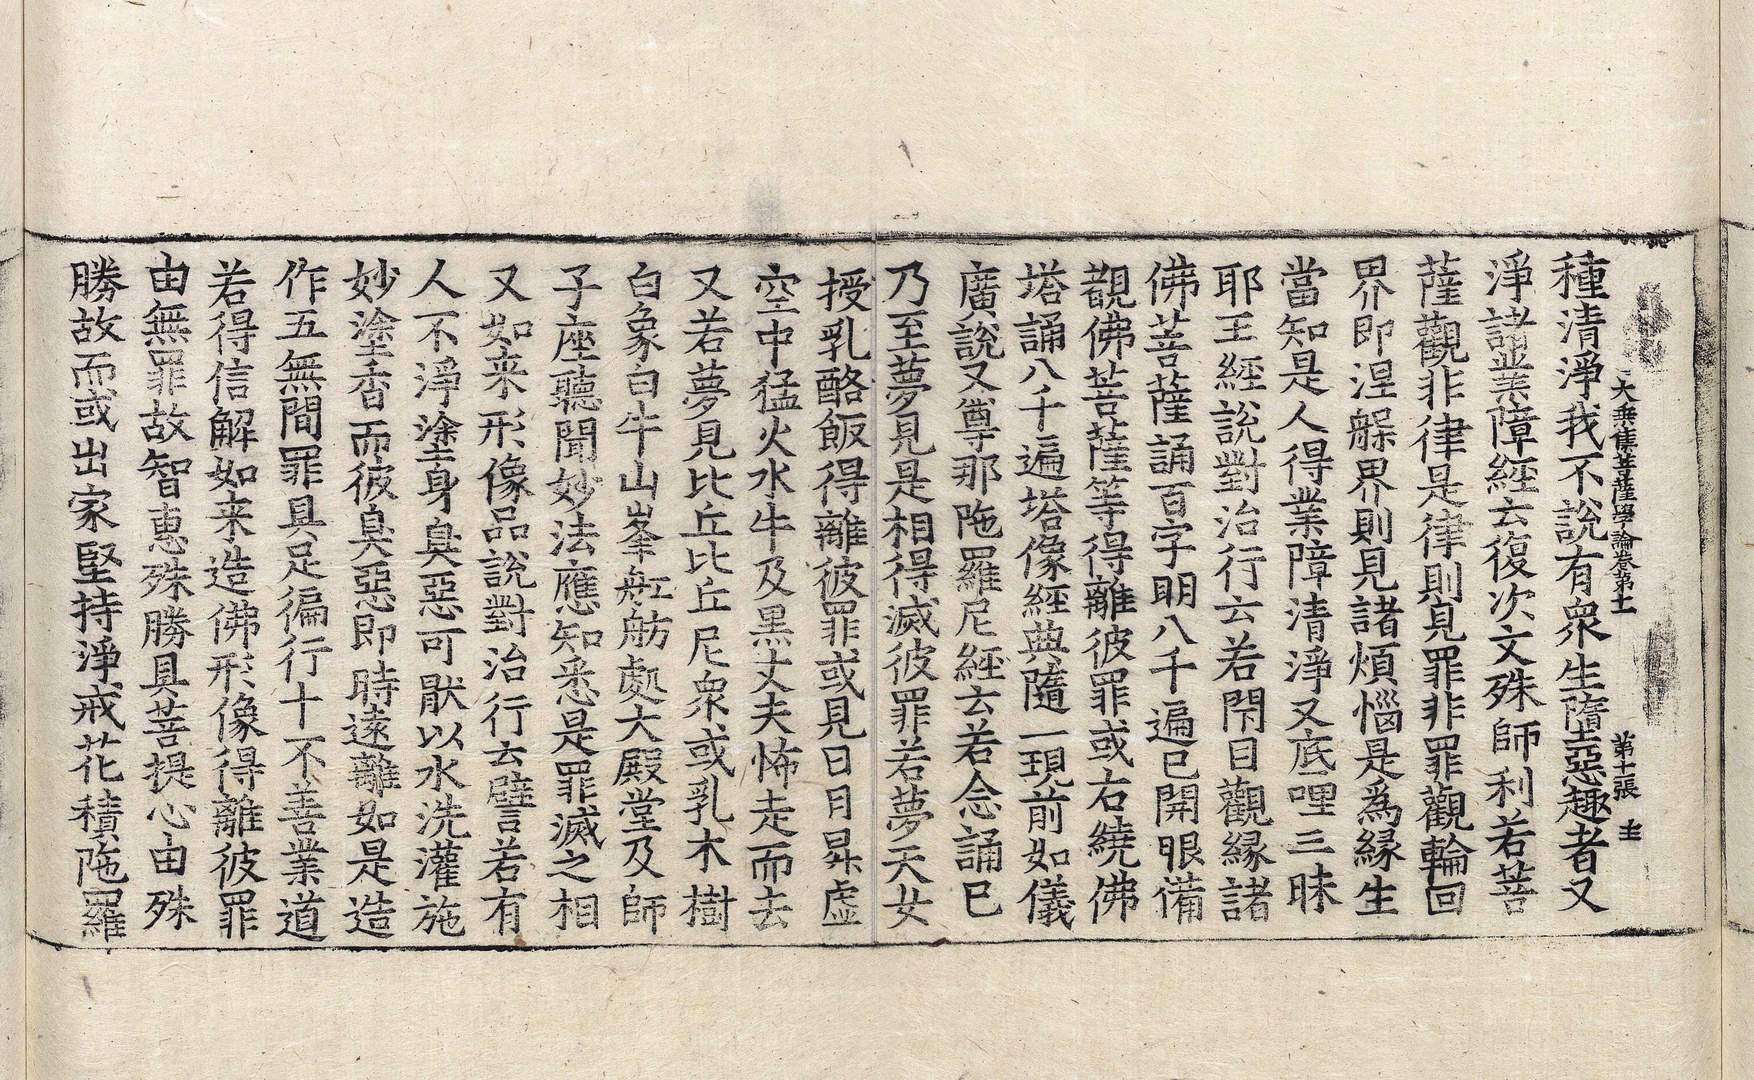 大乘集菩薩學論卷第十一　第十張　圭
種清淨我不說有衆生墮惡趣者又
淨諸業障經云復次文殊師利若菩
薩觀非律是律則見罪非罪觀輪回
界即涅槃界則見諸煩惱是爲緣生
當知是人得業障清淨又底哩三昧
耶王經說對治行云若閇目觀緣諸
佛菩薩誦百字明八千遍已開眼備
覩佛菩薩等得離彼罪或右繞佛
塔誦八千遍塔像經典隨一現前如儀
廣說又尊那陁羅尼經云若念誦已
乃至夢見是相得滅彼罪若夢天女
授乳酪飯得離彼罪或見日月昇虛
空中猛火水牛及黑丈夫怖走而去
又若夢見比丘比丘尼衆或乳木樹
白象白牛山峯舡舫處大殿堂及師
子座聽聞妙法應知悉是罪滅之相
又如来形像品說對治行云譬若有
人不淨塗身臭惡可猒以水洗灌施
妙塗香而彼臭惡即時遠離如是造
作五無間罪具足徧行十不善業道
若得信解如来造佛形像得離彼罪
由無罪故智惠殊勝具菩提心由殊
勝故而或出家堅持淨戒花積陁羅